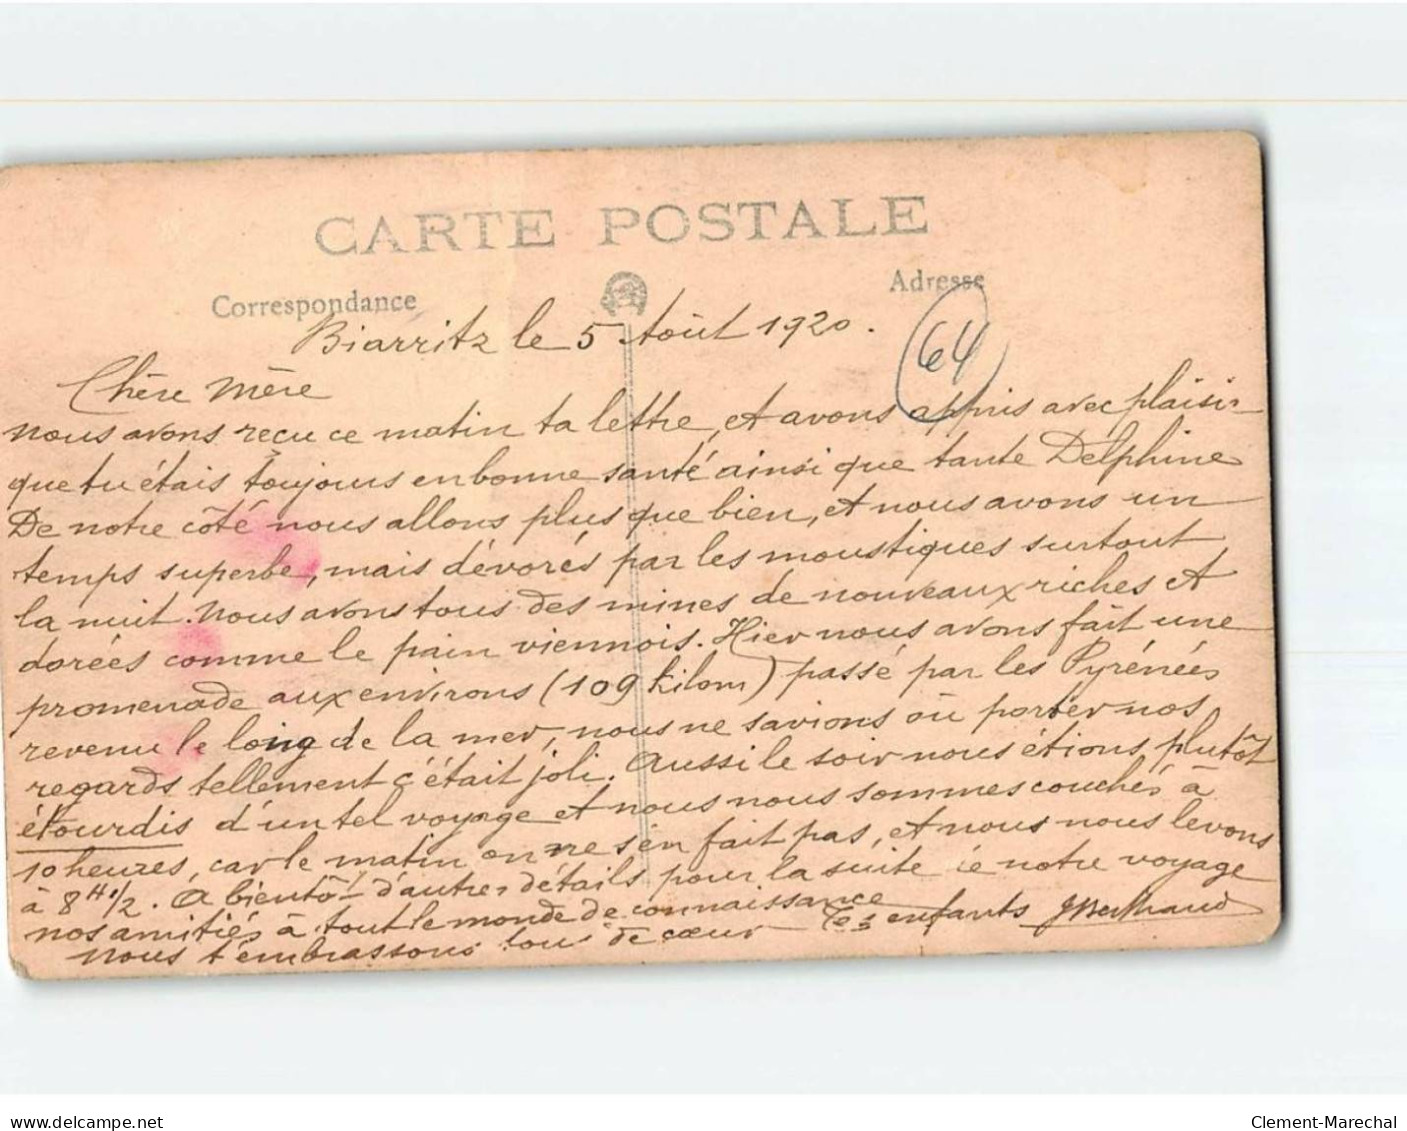 CARTE POSTALE
Correspondance
Adresse
64
Biarritz le 5 Août 1920.
Chère Mère
nous avons reçu ce matin ta lettre, et avons appris avec plaisir
que tu étais toujours en bonne santé ainsi que tante Delphine
De notre côté nous allons plus que bien, et nous avons un
temps superbe, mais dévorés par les moustiques surtout
la nuit. Nous avons tous des mines de nouveaux riches et
dorées comme le pain viennois. Hier nous avons fait une
promenade aux environs (109 kilom) passé par les Pyrénées
revenu le long de la mer, nous ne savions où porter nos
regards tellement c'était joli. Aussi le soir nous étions plutôt
étourdis d'un tel voyage et nous nous sommes couchés à
10 heures, car le matin on ne s'en fait pas, et nous nous levons
à 8 H 1/2. A bientôt d'autres détails pour la suite de notre voyage
nos amitiés à tout le monde de connaissance
Nous t'embrassons tous de cœur Tes enfants JBertrand
delcampe.net
Clement-Marechal